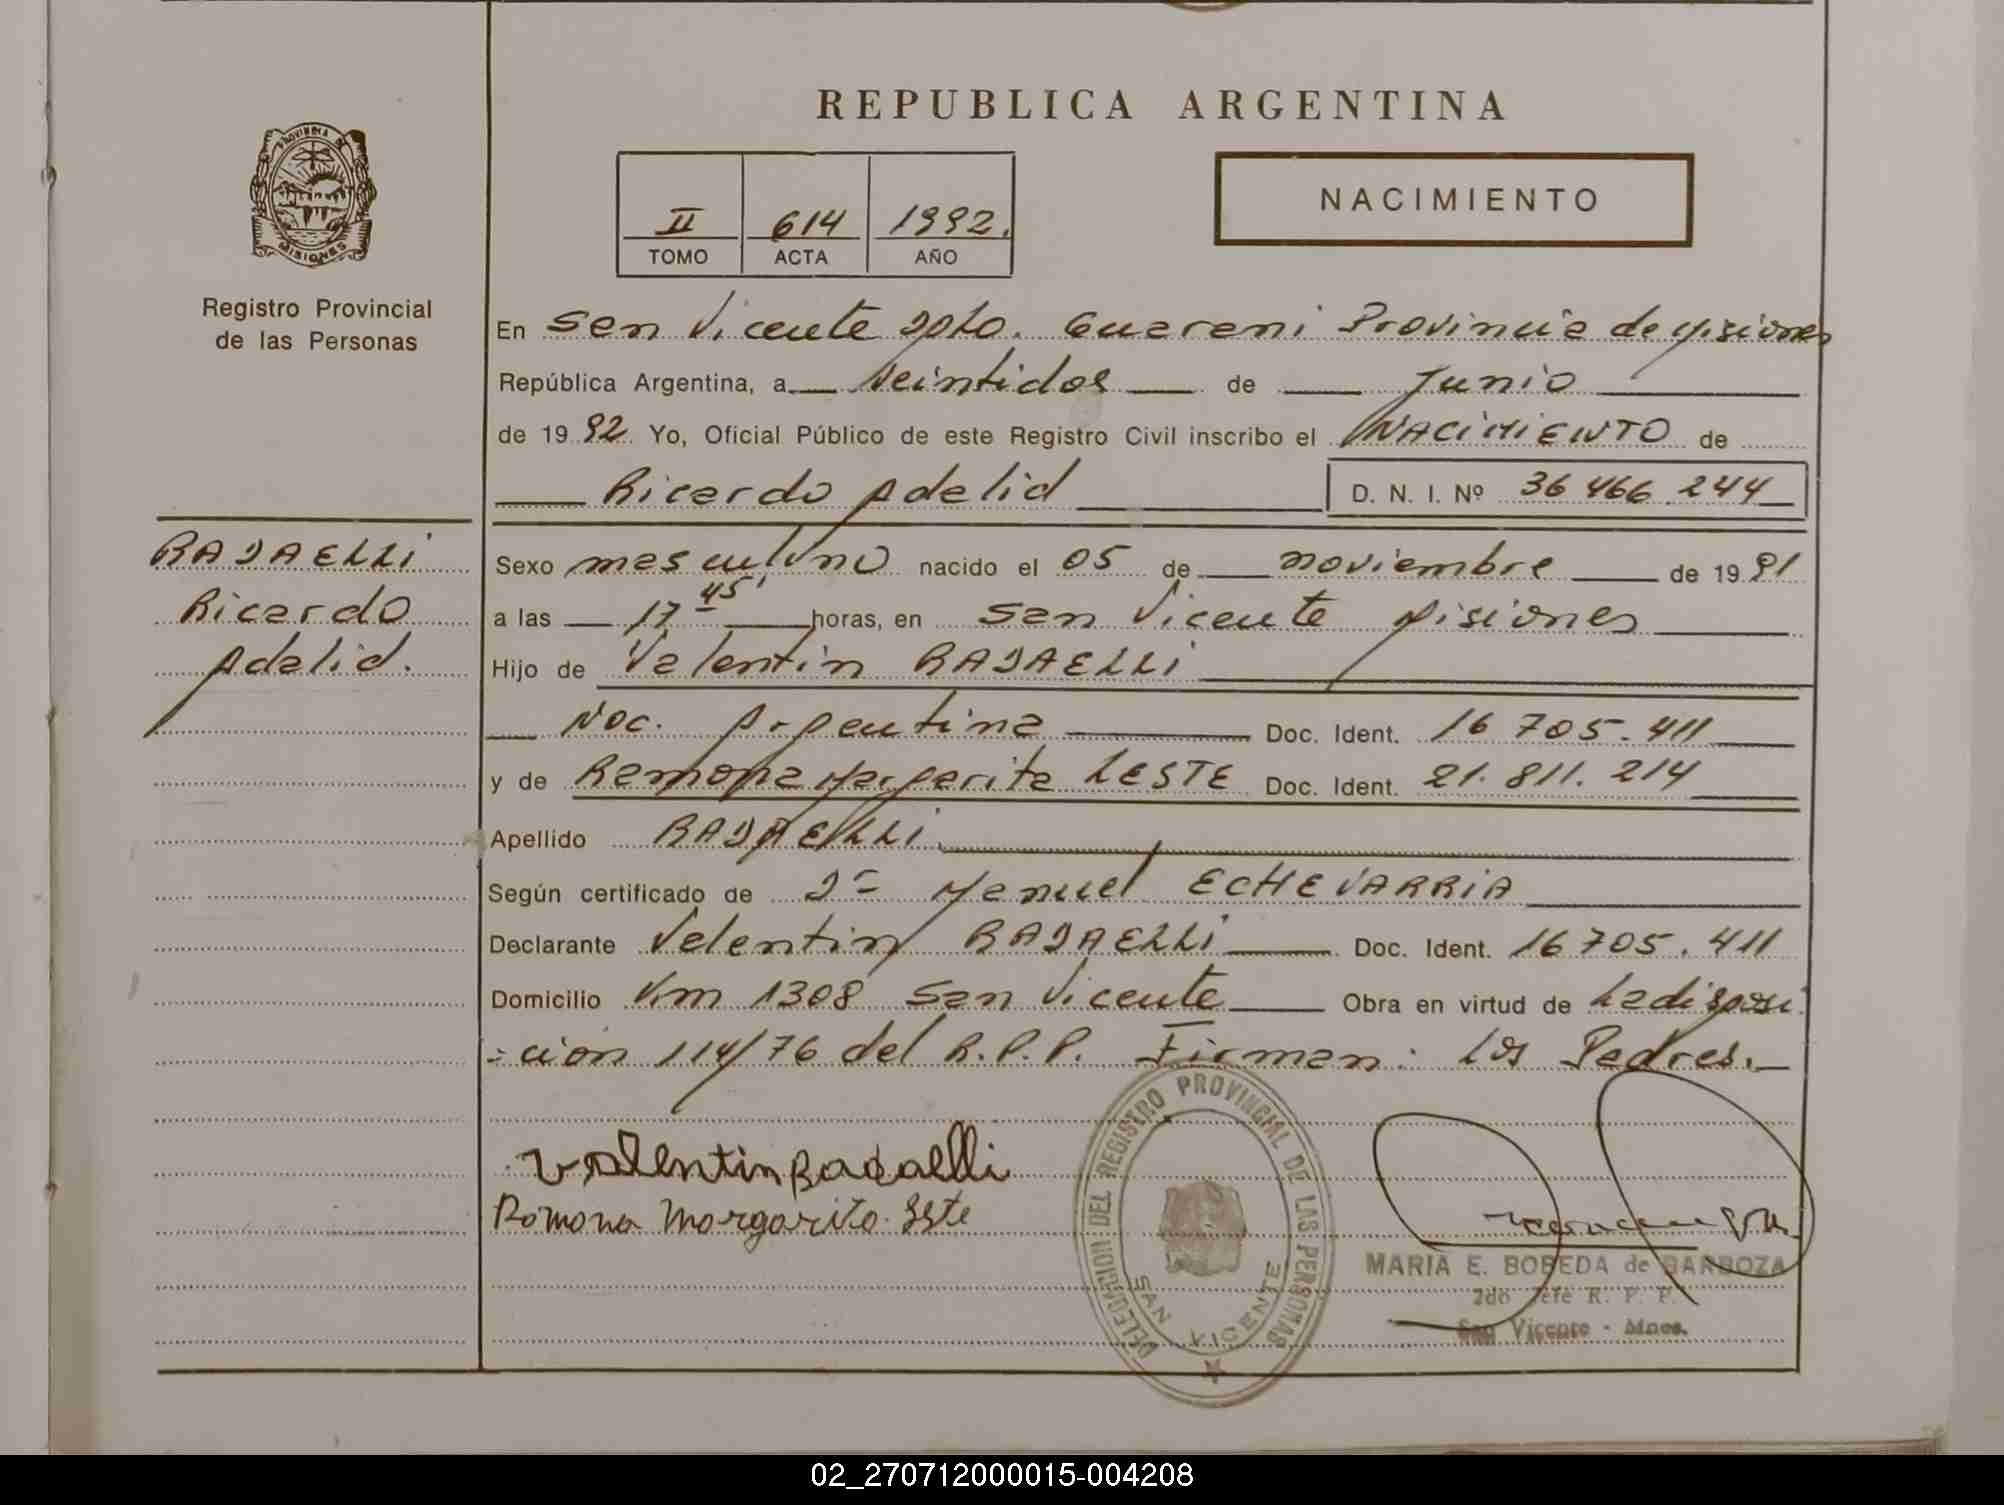 REPUBLICA ARGENTINA
PROVINCIA DE MISIONES
Registro Provincial
de las Personas
II 614 1992.
TOMO ACTA AÑO
NACIMIENTO
En San Vicente Dpto. Guarani Provincia de Misiones
República Argentina, a veintidos de Junio
de 19 92 Yo, Oficial Público de este Registro Civil inscribo el NACIMIENTO de
Ricardo Adelid D. N. I. Nº 36 466 244
RADAELLI
Ricardo
Adelid.
Sexo masculino nacido el 05 de noviembre de 19 91
a las 17 45' horas, en San Vicente Misiones
Hijo de Valentin RADAELLI
Nac. Argentina Doc. Ident. 16 705.411
y de Ramona Margarita LESTE Doc. Ident. 21.811.214
Apellido RADAELLI
Según certificado de Dr Manuel ECHEVARRIA
Declarante Valentin RADAELLI Doc. Ident. 16 705.411
Domicilio Km 1308 San Vicente Obra en virtud de La disposi
-cion 114/76 del R.P.P. Firman: Los Padres.
Valentin Radaelli
Ramona Margarita Leste
DELEGACION DEL REGISTRO PROVINCIAL DE LAS PERSONAS
SAN VICENTE
MARIA E. BOBEDA de BARBOZA
2do Jefe R. P. P.
San Vicente - Mnes.
02_270712000015-004208